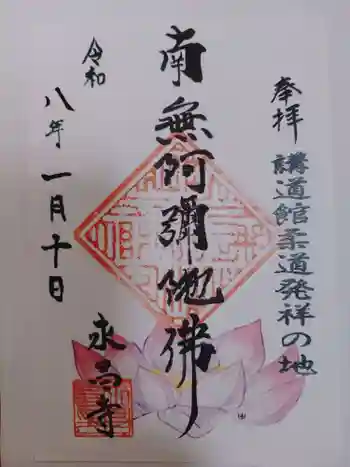 奉拝 講道館柔道発祥の地
南無阿彌陀佛
令和
八年 一月十日
永昌寺